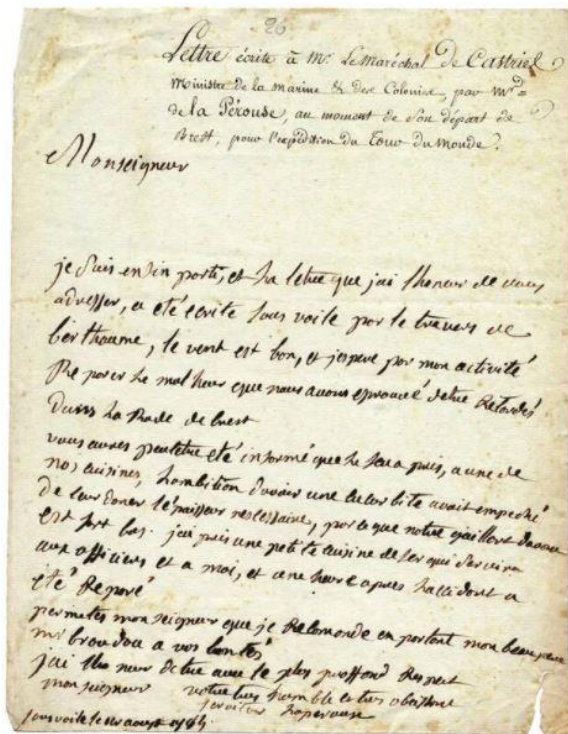 26
Lettre écrite à Mr. Le Maréchal de Castriel
Ministre de la marine & des Colonies, par Mr.
de la Pérouse, au moment de son départ de
Brest, pour l'expédition du Tour du Monde.
Monseigneur
je suis enfin parti, et La letre que jai lhoneur de vous
adresser, a eté ecrite sous voile par le travers de
berthaume, le vent est bon, et jespere par mon activité
Reparer Le malheur que nous avons eprouvé detre Retardés
dans La Rade de brest
vous aures peutetre eté informé que Le feu a pris, a une de
nos cuisines, Lambition davoir une cucurbite avait empeché
de leur doner Lépaisseur nessessaire, parce que notre gaillard davant
est fort bas. jai pris une petite cuisine de fer qui servira
aux officiers et a moi, et une heure apres Laccident a
eté Reparé
permetes monseigneur que je Recomande en partant mon beau frere
mr broudou a vos bontés
jai lhoneur detre avec le plus proffond Respect
monseigneur votre tres humble et tres obeissant
serviteur Laperouse
sous voile le 1er aoust